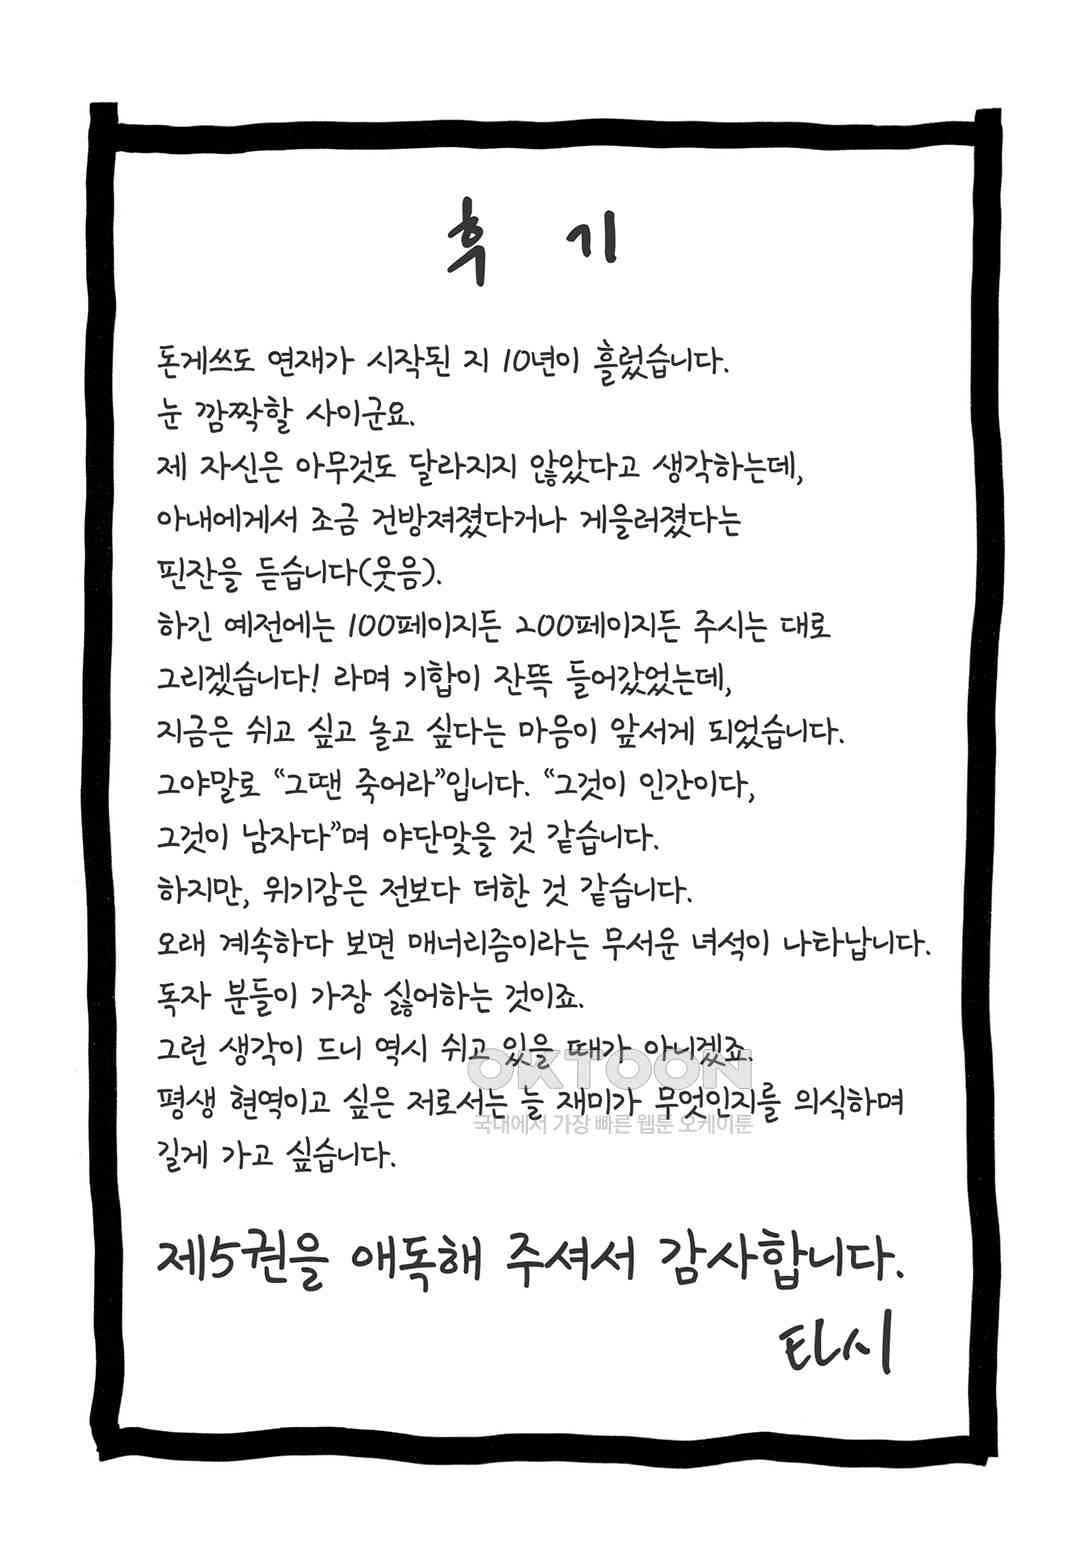 후 기
돈게쓰도 연재가 시작된 지 10년이 흘렀습니다.
눈 깜짝할 사이군요.
제 자신은 아무것도 달라지지 않았다고 생각하는데,
아내에게서 조금 건방져졌다거나 게을러졌다는
핀잔을 듣습니다(웃음).
하긴 예전에는 100페이지든 200페이지든 주시는 대로
그리겠습니다! 라며 기합이 잔뜩 들어갔었는데,
지금은 쉬고 싶고 놀고 싶다는 마음이 앞서게 되었습니다.
그야말로 “그땐 죽어라”입니다. “그것이 인간이다,
그것이 남자다”며 야단맞을 것 같습니다.
하지만, 위기감은 전보다 더한 것 같습니다.
오래 계속하다 보면 매너리즘이라는 무서운 녀석이 나타납니다.
독자 분들이 가장 싫어하는 것이죠.
그런 생각이 드니 역시 쉬고 있을 때가 아니겠죠.
OKTOON
평생 현역이고 싶은 저로서는 늘 재미가 무엇인지를 의식하며
국내에서 가장 빠른 웹툰 오케이툰
길게 가고 싶습니다.
제5권을 애독해 주셔서 감사합니다.